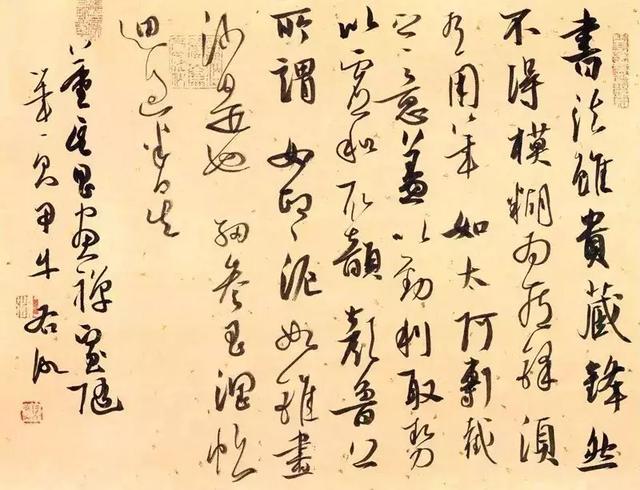 書法雖貴藏鋒然
不得模糊為藏鋒須
有用筆如太阿剸截
之意蓋以勁利取勢
以虛和取韻顏魯公
所謂如印〻泥如錐畫
沙是也細參玉潤帖
思過半矣
董其昌畫禪室隨
筆一則甲午